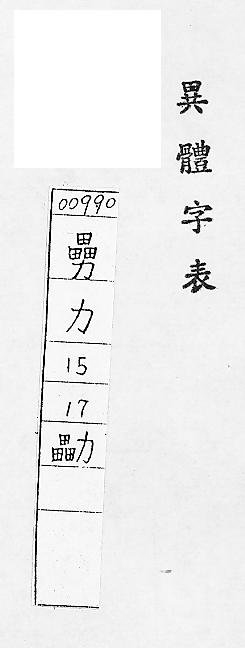 異體字表
00990
力
15
17